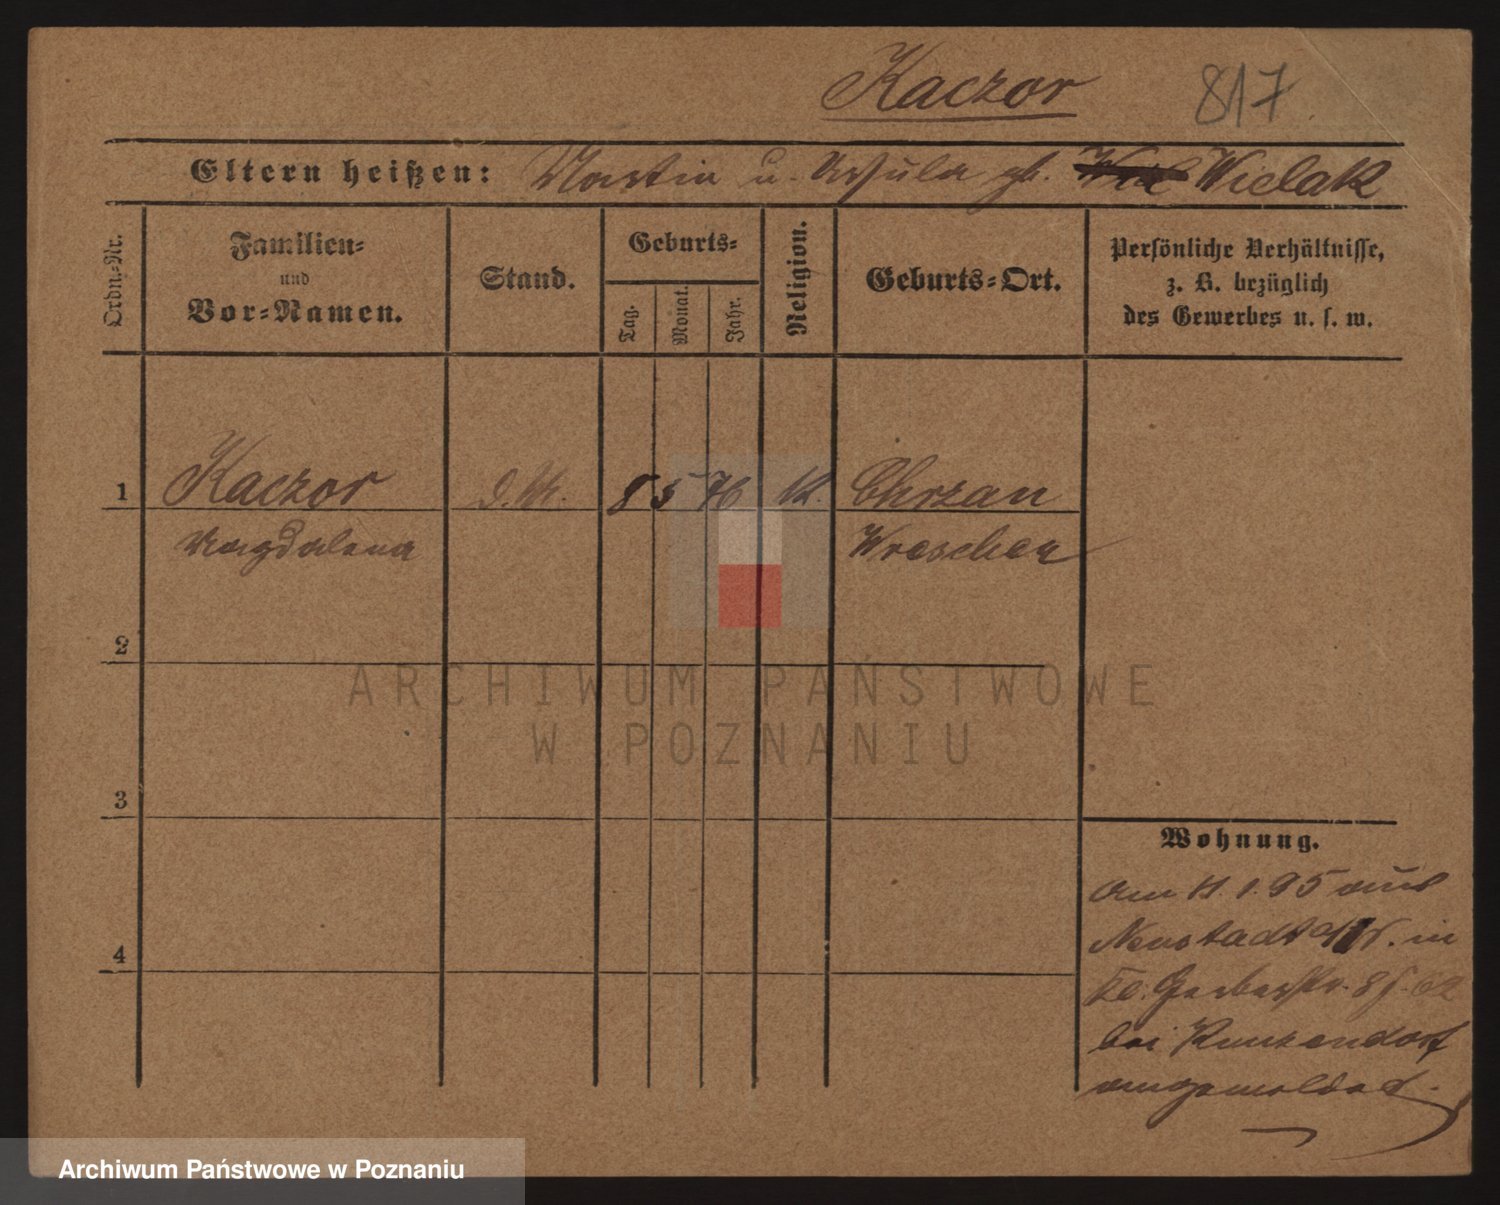 Kaczor 817
Eltern heißen: Martin u. Ursula gb. Wielak
Ordn.=Nr.
Familien=
und
Vor=Namen.
Stand.
Geburts=
Tag.
Monat.
Jahr.
Religion.
Geburts=Ort.
Persönliche Verhältnisse,
z. B. bezüglich
des Gewerbes u. s. w.
1 Kaczor 8 5 76 K. Chrzan
Magdalena Wreschen
2
3
4
Wohnung.
am 11.1.95 aus
Neustadt a/W. in
Kl. Gerberstr. 8
bei Kunzendorf
angemeldet.
ARCHIWUM PAŃSTWOWE
W POZNANIU
Archiwum Państwowe w Poznaniu